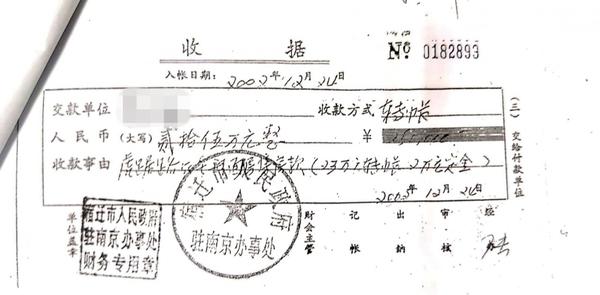 收据
№ 0182893
入帐日期: 2002年12月24日
交款单位 收款方式 转帐
人民币(大写) 贰拾伍万元整 ¥
收款事由 款(23万转帐 2万元定金)
2002年12月24日
(三)交给付款单位
单位盖章
宿迁市人民政府
驻南京办事处
财务专用章
宿迁市人民政府
驻南京办事处
财会主管 记帐 出纳 审核 经办